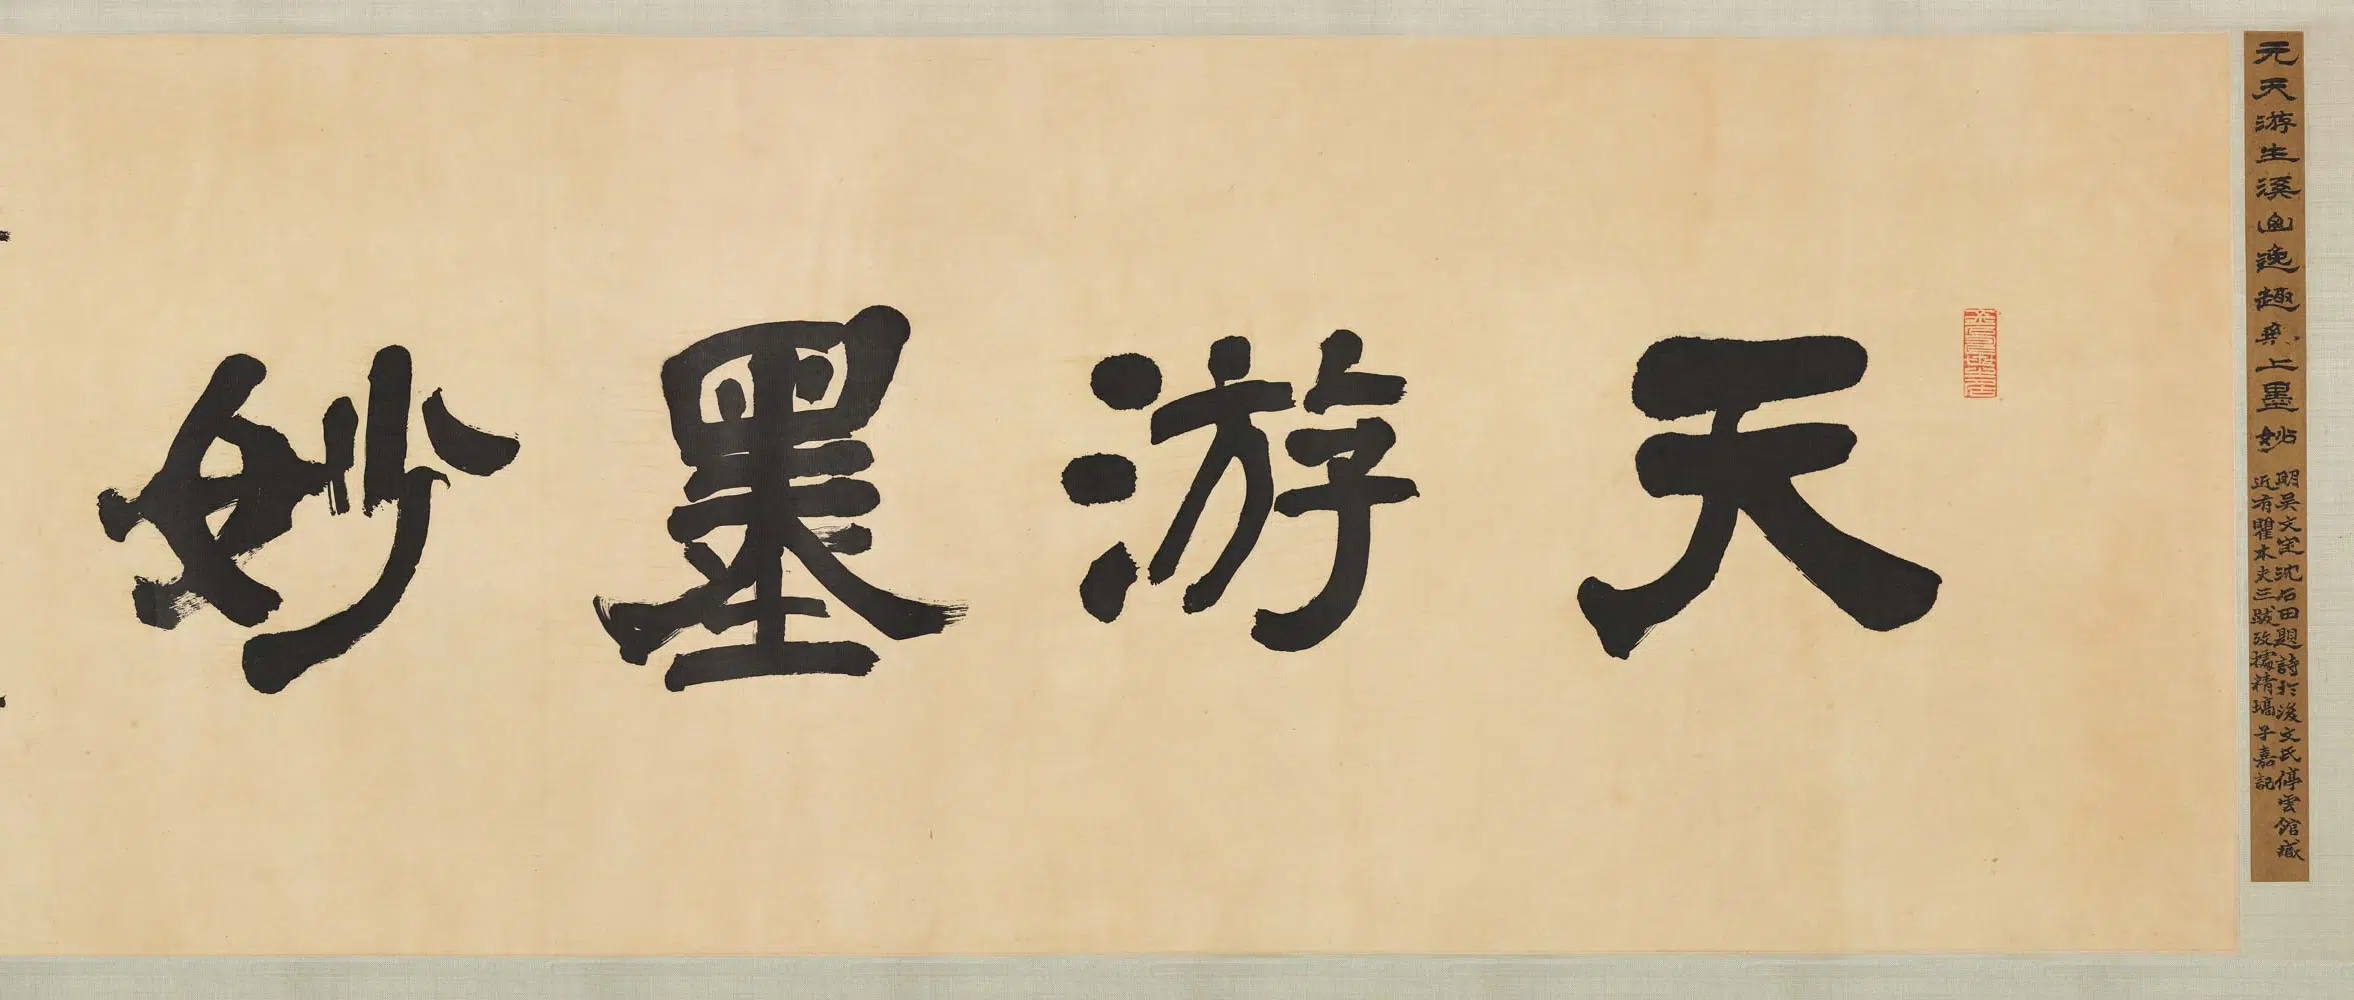 元天游生溪山逸趣無上墨妙
明吳文定沈石田題詩於後文氏停雲館藏
近有瞿木夫三跋攷據精塙 子嘉記
天游墨妙